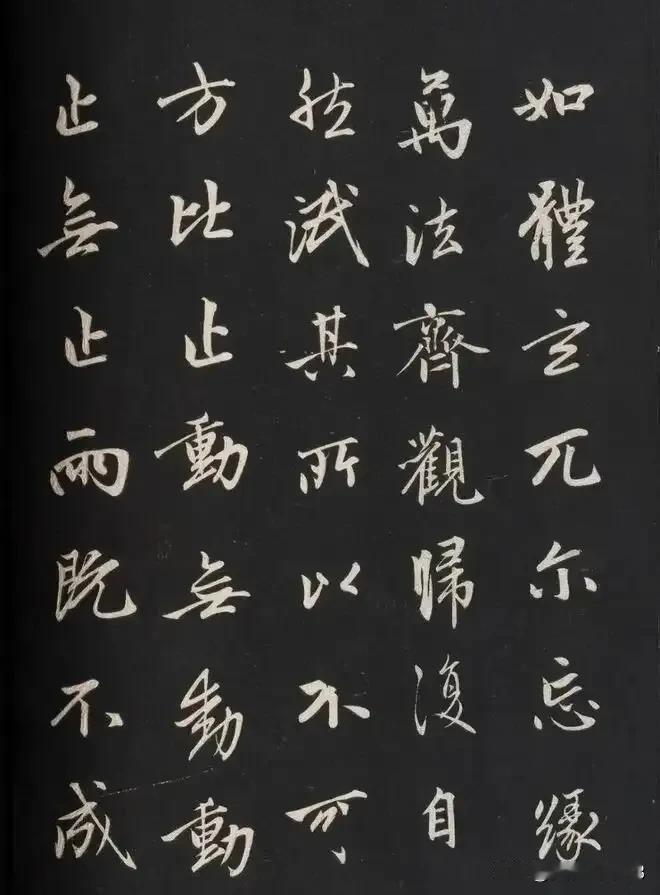 如體玄兀尔忘緣
萬法齊觀歸復自
然泯其所以不可
方比止動無動動
止無止兩既不成